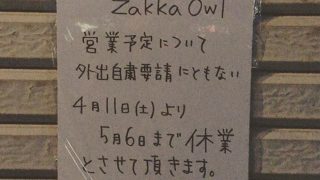 Zakka Owl
営業予定について
外出自粛要請にともない
4月11日(土)より
5月6日まで休業
とさせて頂きます。